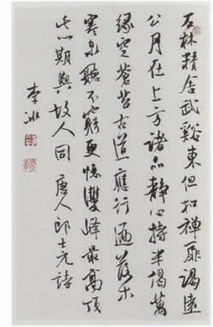 石林精舍武谿東但扣禪扉謁遠
公月在上方諸品靜心持半偈萬
緣空蒼苔古道應行遍落木
寒泉聽不窮更憶雙峰最高頂
此心期與故人同 唐人郎士元詩
李冰